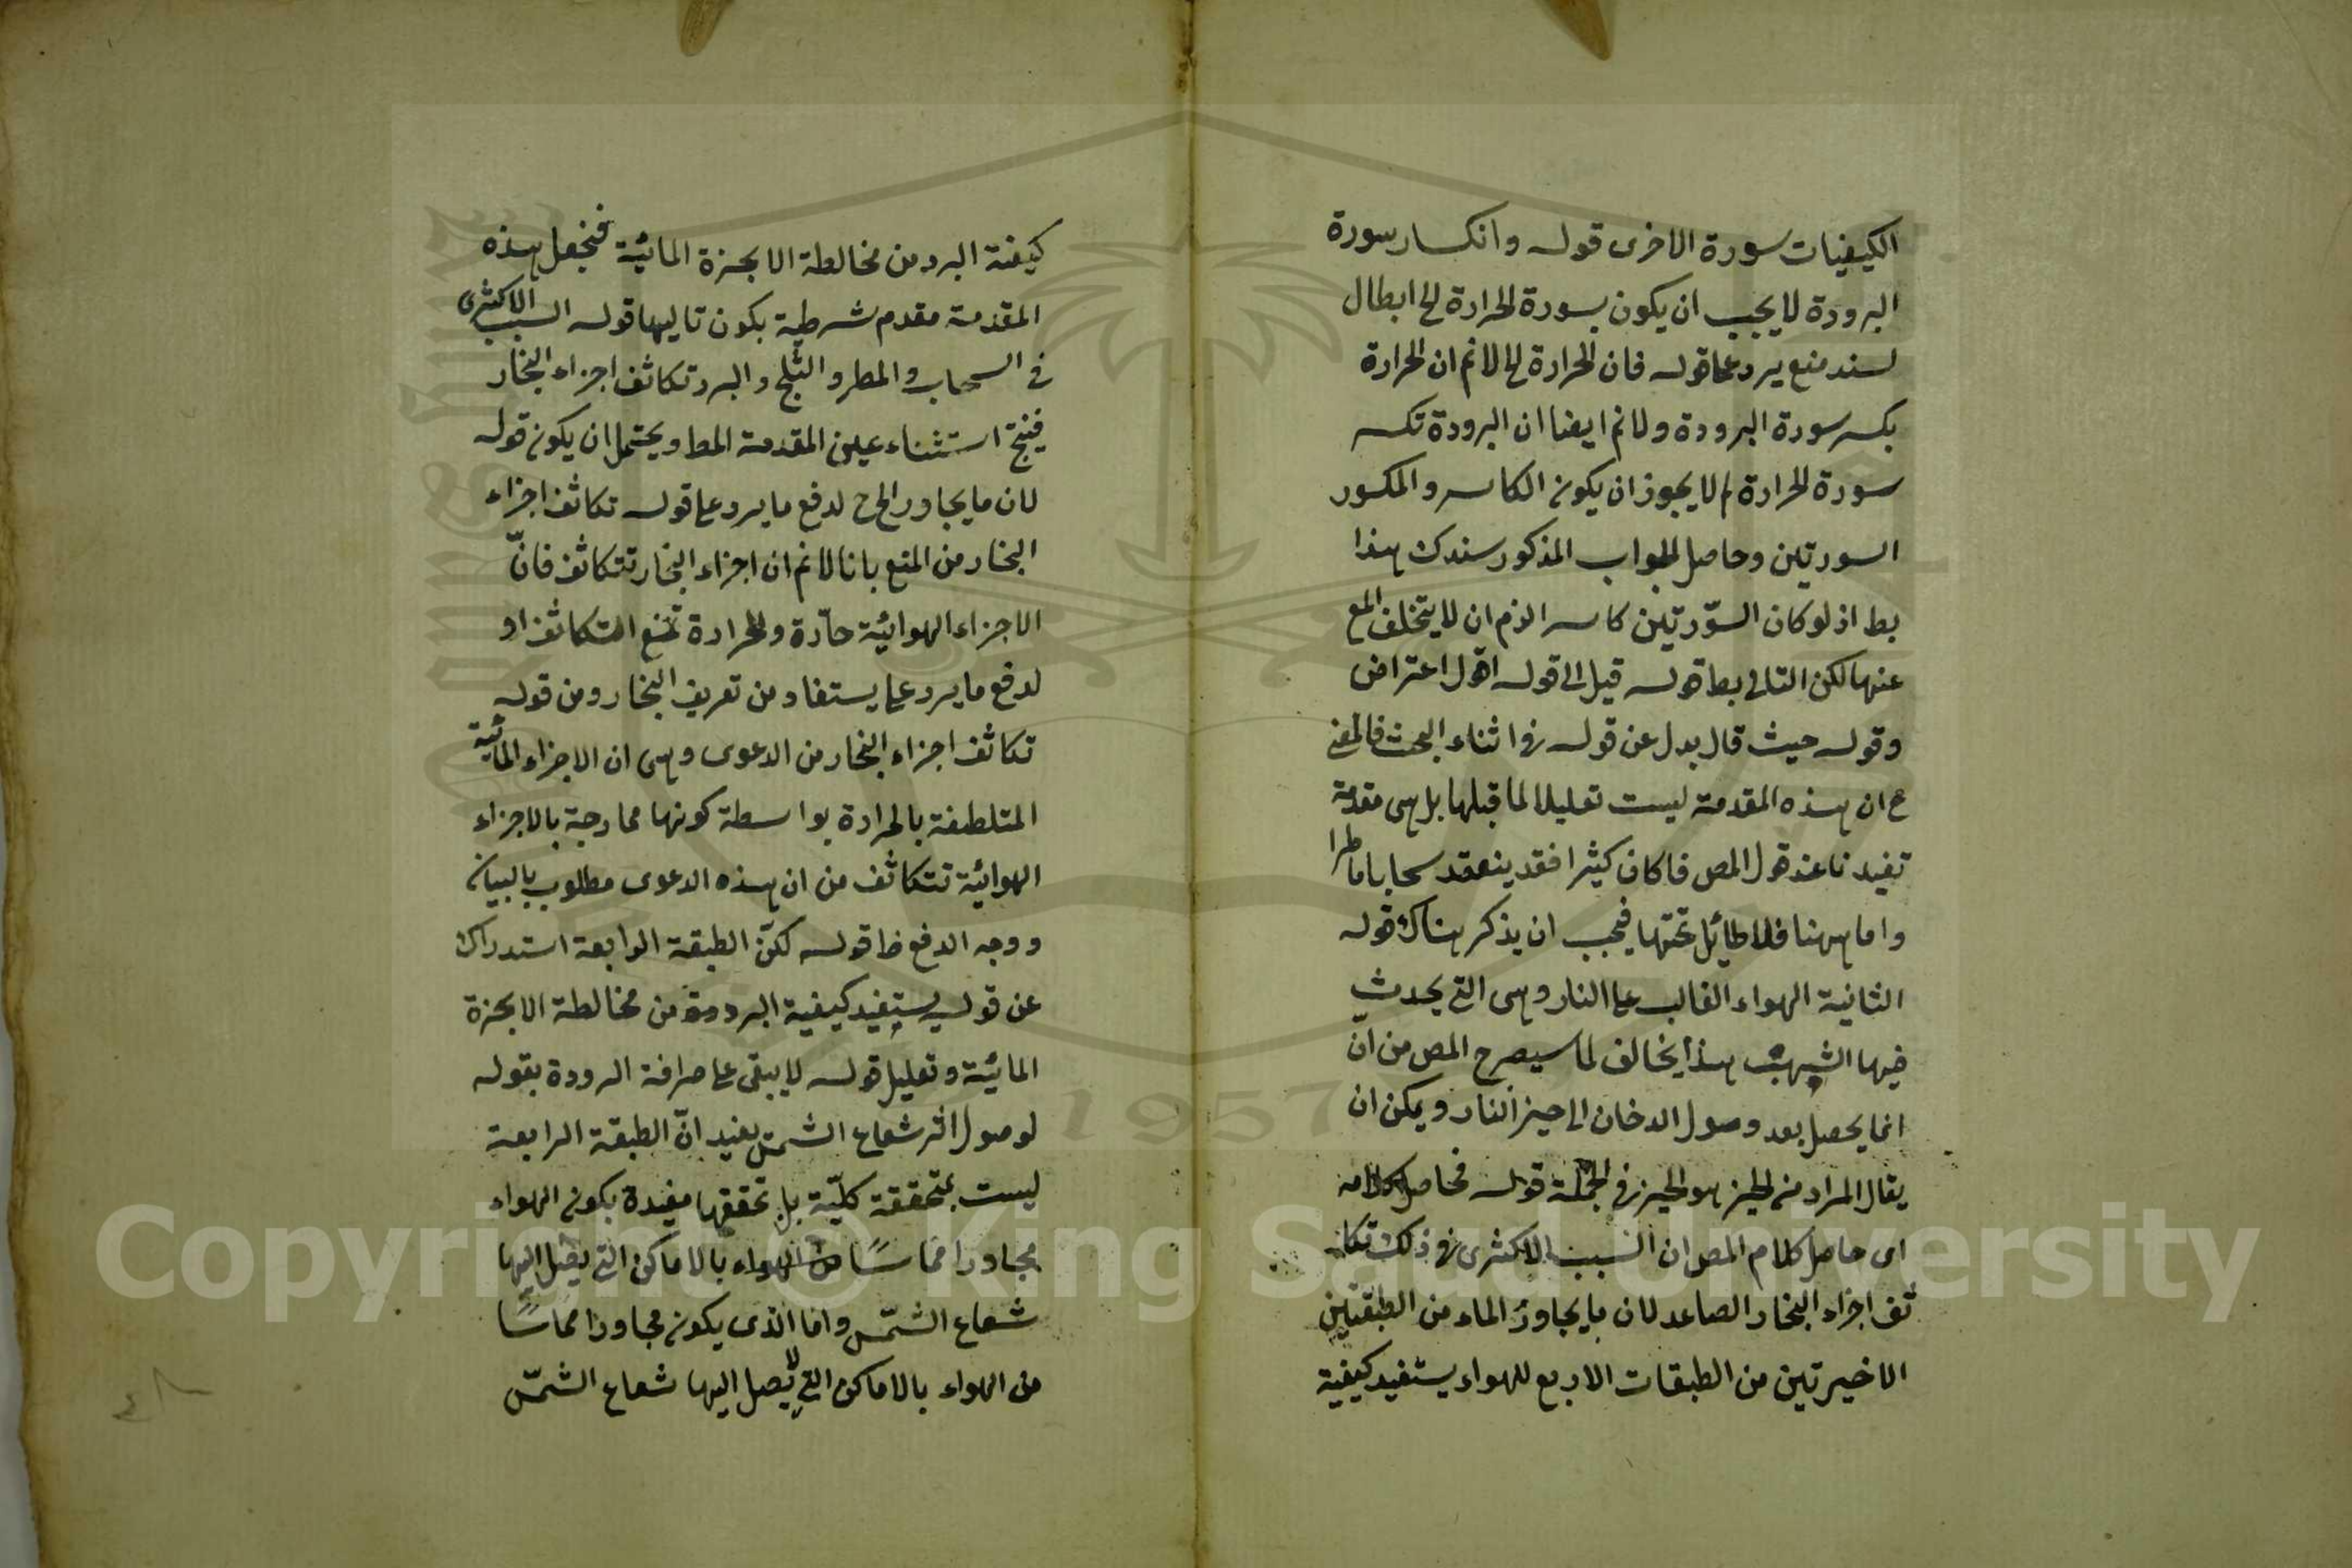 الكيفيات سورة الاخرى قوله وانكسار سورة
البرودة لا يجب ان يكون بسورة الحرارة الخ ابطال
لسند منع يرد على قوله فان الحرارة الخ لانم ان الحرارة
بكسر سورة البرودة ولانم ايضا ان البرودة تكسر
سورة الحرارة لم لا يجوز ان يكون الكاسر والمكسور
السورتين وحاصل الجواب المذكور سندك هذا
بط اذ لو كان السّورتين كاسرا لزم ان لا يتخلف المع
عنهما لكن التالى بط قوله قيل الى قوله اقول اعتراض
وقوله حيث قال بدل عن قوله فى اثناء البحث فالمعنى
ح ان هذه المقدمة ليست تعليلا لما قبلها بل هى مقدمة
تفيدنا عند قول المص فاكان كثيرا فقد ينعقد سحابا ماطرا
واما ههنا فلا طائل تحتها فيجب ان يذكر هناك قوله
الثانية الهواء الغالب على النار وهى التى يحدث
فيها الشهب هذا يخالف لما سيصرح المص من ان
انما يحصل بعد وصول الدخان الى حيز النار ويمكن ان
يقال المراد من الحيز هو الحيز فى الجملة قوله فحاصل كلامه
اى حاصل كلام المص ان السبب الاكثرى فى ذلك تكا
ثف اجزاء البخار الصاعد لان ما يجاور الماء من الطبقتين
الاخيرتين من الطبقات الاربع للهواء يستفيد كيفية
كيفية البرد من مخالطة الابخرة المائية فنجعل هذه
المقدمة مقدم شرطية بكون تاليها قوله السبب الاكثرى
فى السحاب والمطر والثلج والبرد تكاثف اجزاء البخار
فينتج استثناء عين المقدمة المط ويحتمل ان يكون قوله
لان ما يجاور الخ ح لدفع ما يرد على قوله تكاثف اجزاء
البخار من المنع بانا لانم ان اجزاء البخار تتكاثف فانّ
الاجزاء الهوائية حارّة والحرارة تمنع التكاثف او
لدفع ما يرد على ما يستفاد من تعريف البخار ومن قوله
تكاثف اجزاء البخار من الدعوى وهى ان الاجزاء المائية
المتلطفة بالحرارة بواسطة كونها ممازجة بالاجزاء
الهوائية تتكاثف من ان هذه الدعوى مطلوب بالبيان
ووجه الدفع ظ قوله لكنّ الطبقة الرابعة استدراك
عن قوله يستفيد كيفية البرد من مخالطة الابخرة
المائية وتعليل قوله لا يبقى على صرافة البرودة بقوله
لوصول اثر شعاع الشمس يفيد انّ الطبقة الرابعة
ليست بمتحققة كليّة بل تحققها مفيدة بكون الهواء
مجاورا مماسًا من الهواء بالاماكن التى يصل اليها
شعاع الشمّس واما الذى يكون مجاورا مماسًا
من الهواء بالاماكن التى لا يصل اليها شعاع الشمّس
Copyright © King Saud University
1957